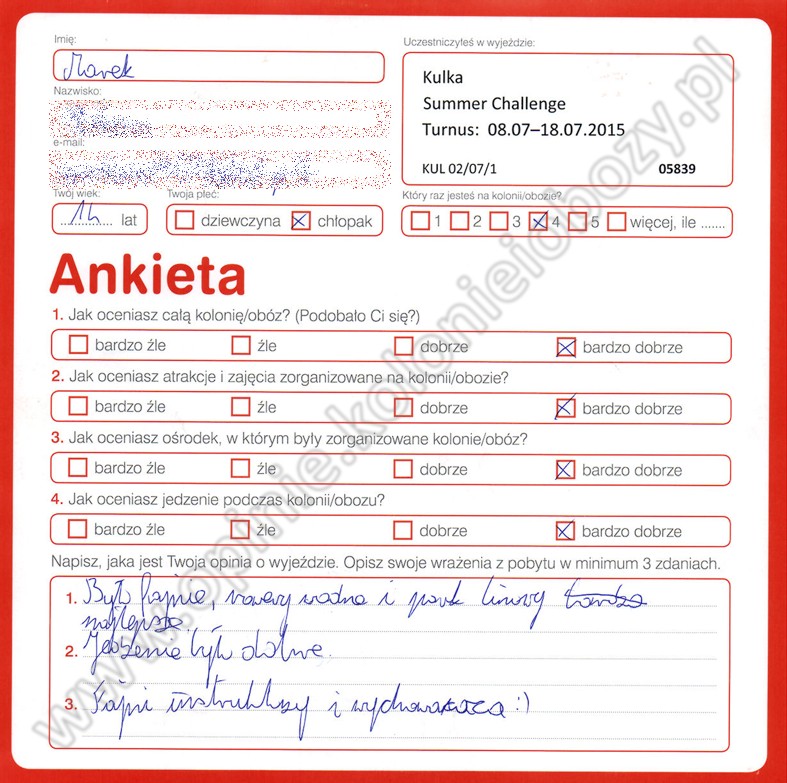 Imię:
Marek
Nazwisko:
e-mail:
Twój wiek:
14 lat
Twoja płeć:
dziewczyna chłopak
Uczestniczyłeś w wyjeździe:
Kulka
Summer Challenge
Turnus: 08.07–18.07.2015
KUL 02/07/1 05839
Który raz jesteś na kolonii/obozie?
1 2 3 4 5 więcej, ile .......
Ankieta
1. Jak oceniasz całą kolonię/obóz? (Podobało Ci się?)
bardzo źle źle dobrze bardzo dobrze
2. Jak oceniasz atrakcje i zajęcia zorganizowane na kolonii/obozie?
bardzo źle źle dobrze bardzo dobrze
3. Jak oceniasz ośrodek, w którym były zorganizowane kolonie/obóz?
bardzo źle źle dobrze bardzo dobrze
4. Jak oceniasz jedzenie podczas kolonii/obozu?
bardzo źle źle dobrze bardzo dobrze
Napisz, jaka jest Twoja opinia o wyjeździe. Opisz swoje wrażenia z pobytu w minimum 3 zdaniach.
1. Było fajnie, rowery wodne i park linowy
najlepsze.
2. Jedzenie było dobre.
3. Fajni instruktorzy i wychowawca :)
www.opinie.kolonieiobozy.pl